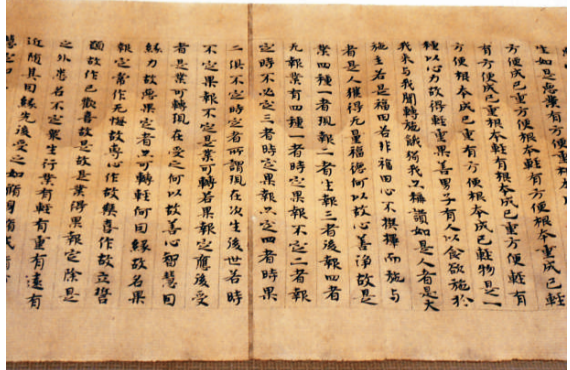 方便成已重方便根本輕有方便根本重成已輕
有方便成已重根本輕有根本成已重方便輕有
方便根本成已重有方便根本成已輕物是一
種以心力故得輕重果善男子有人以食欲施於
我未与我閒轉施餓狗我亦稱讚如是人者是大
施主若是福田若非福田心不揀擇而施与
者是人獲得无量福德何以故心善淨故是
業四種一者現報二者生報三者後報四者
无報業有四種一者時定果報不定二者報
定時不必定三者時定果報亦定四者時果
二俱不定時定者所謂現在次生後世若時
不定果報不定是業可轉若果報定應後受
者是業可轉現在受之何以故善心智慧因
緣力故惡果定者亦可轉輕何因緣故名果
報定常作无悔故專心作故樂喜作故立誓
願故作已歡喜故是故是業得果報定除是
之外悉名不定衆生行業有輕有重有遠有
近隨其因緣先後受之如